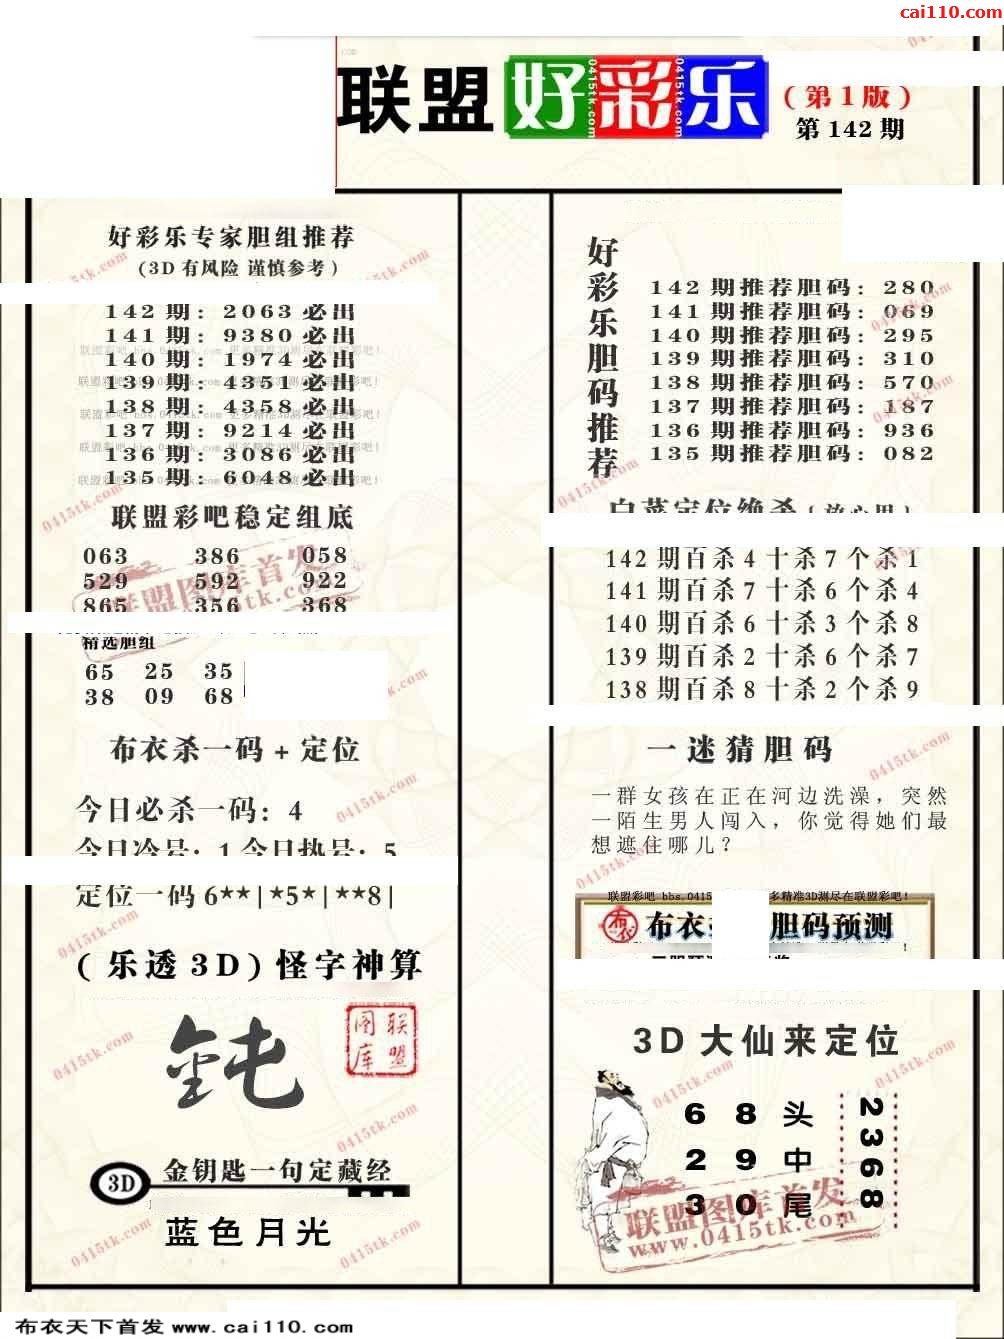 cai110.com
联盟好彩乐
(第1版)
第 142 期
好彩乐专家胆组推荐
(3D 有风险 谨慎参考)
142 期: 2063 必出
141 期: 9380 必出
140 期: 1974 必出
139 期: 4351 必出
138 期: 4358 必出
137 期: 9214 必出
136 期: 3086 必出
135 期: 6048 必出
联盟彩吧稳定组底
063 386 058
529 592 922
865 356 368
精选胆组
65 25 35
38 09 68
布衣杀一码 + 定位
今日必杀一码: 4
今日冷号: 1 今日热号: 5
定位一码 6**|*5*|**8|
(乐透 3D) 怪字神算
钝
联盟图库
3D 金钥匙一句定藏经
蓝色月光
好彩乐胆码推荐
142 期推荐胆码: 280
141 期推荐胆码: 069
140 期推荐胆码: 295
139 期推荐胆码: 310
138 期推荐胆码: 570
137 期推荐胆码: 187
136 期推荐胆码: 936
135 期推荐胆码: 082
白菜定位绝杀
142 期百杀 4 十杀 7 个杀 1
141 期百杀 7 十杀 6 个杀 4
140 期百杀 6 十杀 3 个杀 8
139 期百杀 2 十杀 6 个杀 7
138 期百杀 8 十杀 2 个杀 9
一迷猜胆码
一群女孩在正在河边洗澡，突然
一陌生男人闯入，你觉得她们最
想遮住哪儿？
联盟彩吧 bbs.0415 多精准3D测尽在联盟彩吧!
布衣 布衣 胆码预测
3D 大仙来定位
6 8 头
2 9 中
3 0 尾
2368
联盟图库首发
www.0415tk.com
布衣天下首发 www.cai110.com